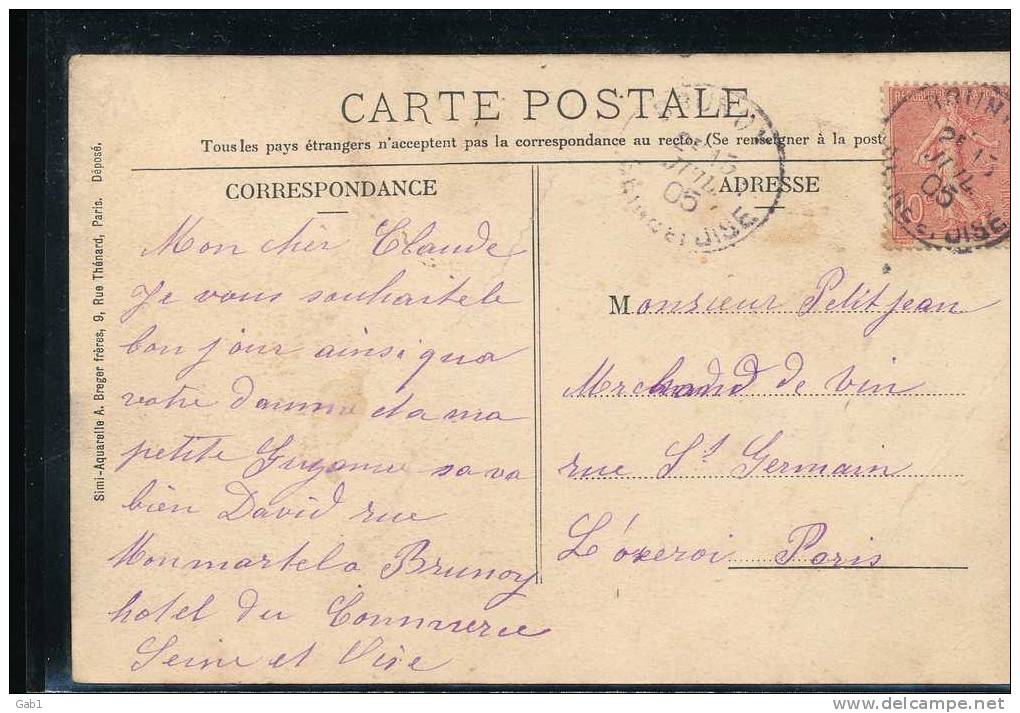 CARTE POSTALE
Tous les pays étrangers n'acceptent pas la correspondance au recto (Se renseigner à la post
CORRESPONDANCE
ADRESSE
Simi-Aquarelle A. Breger frères, 9, Rue Thénard, Paris. Déposé.
Mon cher Claude
Je vous souhaite le
bon jour ainsi qua
votre damme et a ma
petite sa va
bien David rue
Monmartel a Brunoy
hotel du Commerce
Seine et Oise
Monsieur Petit jean
de Vin
rue St Germain
L'oxeroi Paris
BRUNOY
JUIL
05
OISE
10
Gab1
delcampe.net